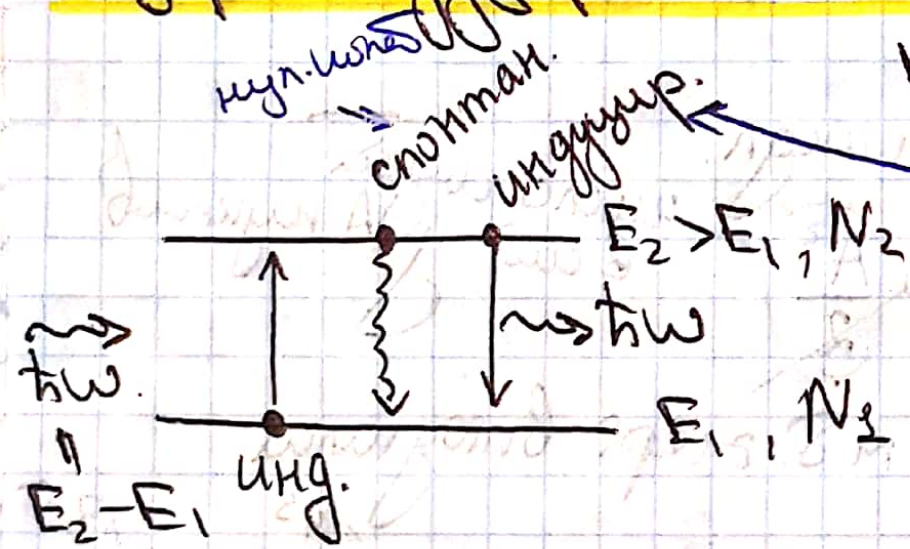 нул. колеб
спонтан.
индуцир.
E₂ > E₁, N₂
ħω.
ħω
=
E₁, N₁
E₂ – E₁
инд.